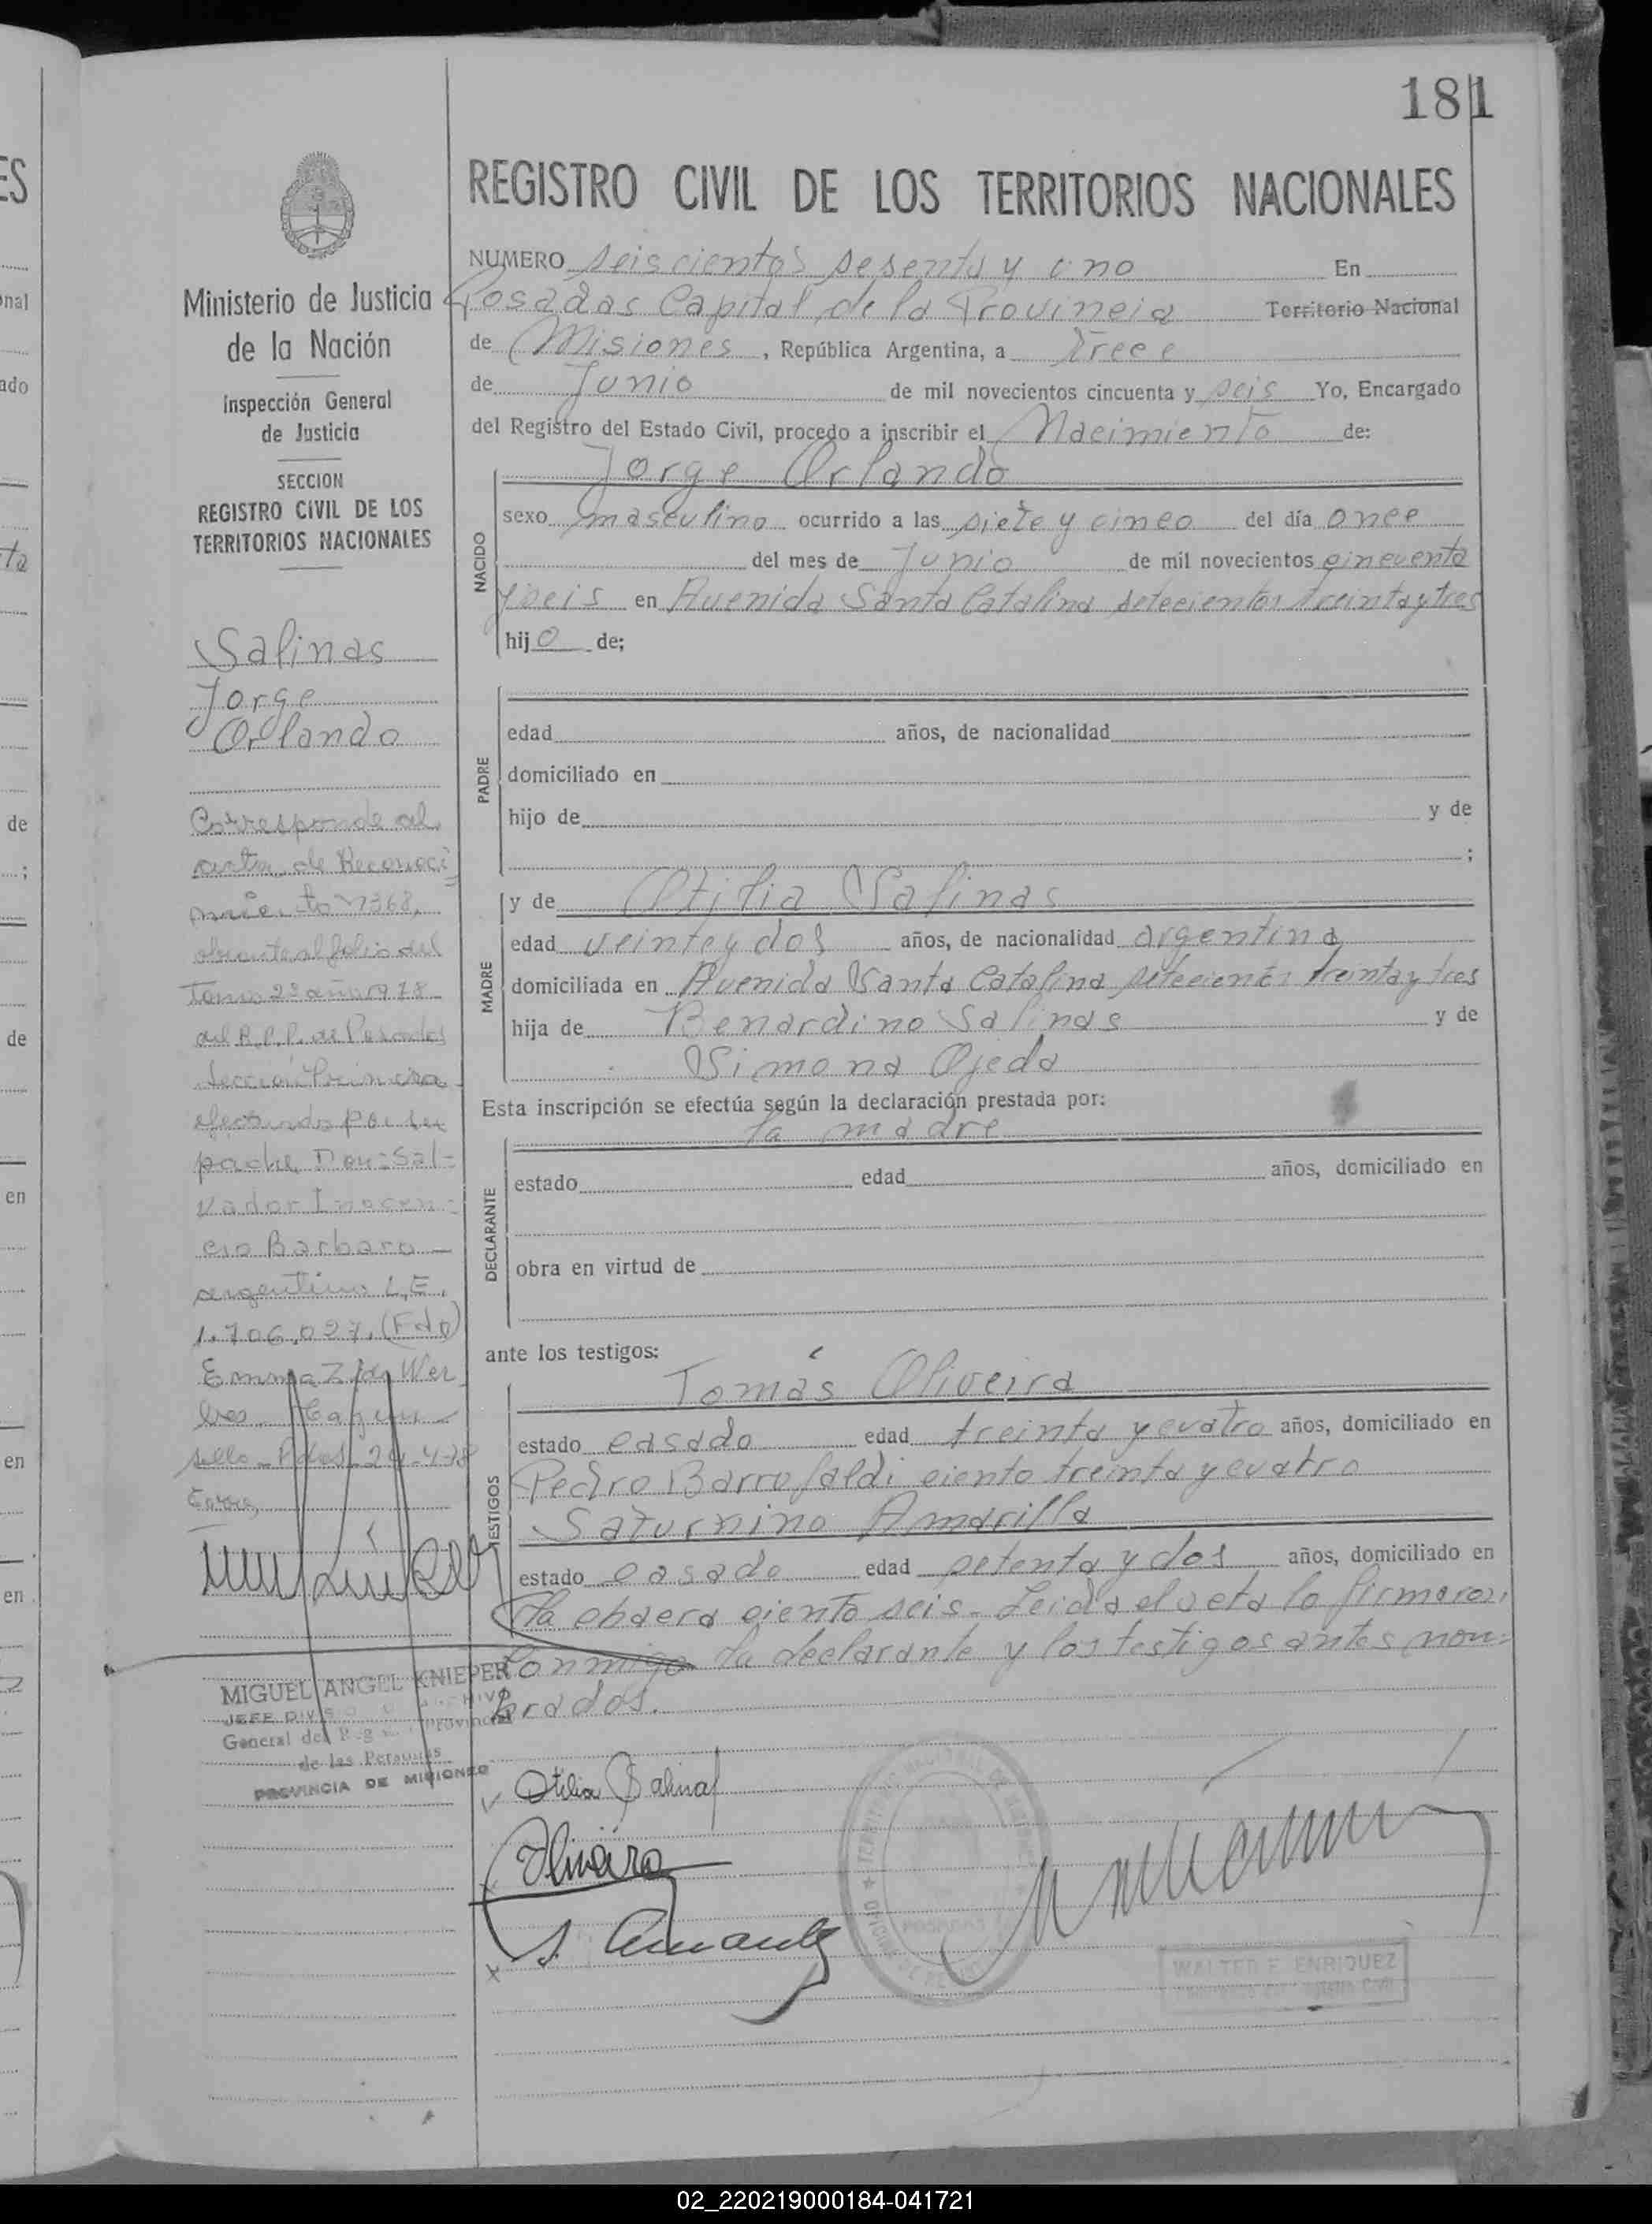 181
REGISTRO CIVIL DE LOS TERRITORIOS NACIONALES
Ministerio de Justicia
de la Nación
Inspección General
de Justicia
SECCION
REGISTRO CIVIL DE LOS
TERRITORIOS NACIONALES
Salinas
Jorge
Orlando
Corresponde al
acta de Reconoci
miento 1368,
obrante al folio del
Tomo 2º año 1978
del R.P.P. de Posadas
Sección Primera
efectuado por su
padre Don: Sal-
vador Inocen-
cio Barbaro
argentino L.E.
1.706.027. (Fdo)
Emma Z. de
sello - Pdas - 24-4-78
MIGUEL ANGEL KNIEPER
JEFE
General del Provincial
de las Personas
PROVINCIA DE MISIONES
NUMERO seiscientos sesenta y uno En
Posadas Capital de la Provincia Territorio Nacional
de Misiones, República Argentina, a trece
de Junio de mil novecientos cincuenta y seis Yo, Encargado
del Registro del Estado Civil, procedo a inscribir el Nacimiento de:
Jorge Orlando
NACIDO
sexo masculino ocurrido a las siete y cinco del día once
del mes de Junio de mil novecientos cincuenta
y seis en Avenida Santa Catalina setecientos treinta y tres
hijo de;
PADRE
edad años, de nacionalidad
domiciliado en
hijo de y de
;
MADRE
y de Otilia Salinas
edad veinte y dos años, de nacionalidad argentina
domiciliada en Avenida Santa Catalina setecientos treinta y tres
hija de Benardino Salinas y de
Simona Ojeda
Esta inscripción se efectúa según la declaración prestada por:
la madre
DECLARANTE
estado edad años, domiciliado en
obra en virtud de
ante los testigos:
TESTIGOS
Tomás Oliveira
estado casado edad treinta y cuatro años, domiciliado en
Pedro Barrofaldi ciento treinta y cuatro
Saturnino Amarilla
estado casado edad setenta y dos años, domiciliado en
la chacra ciento seis. Leida el acta la firmaron
conmigo la declarante y los testigos antes nom-
brados.
Otilia Salinas
Oliveira
S.
POSADAS
WALTER E. ENRIQUEZ
02_220219000184-041721